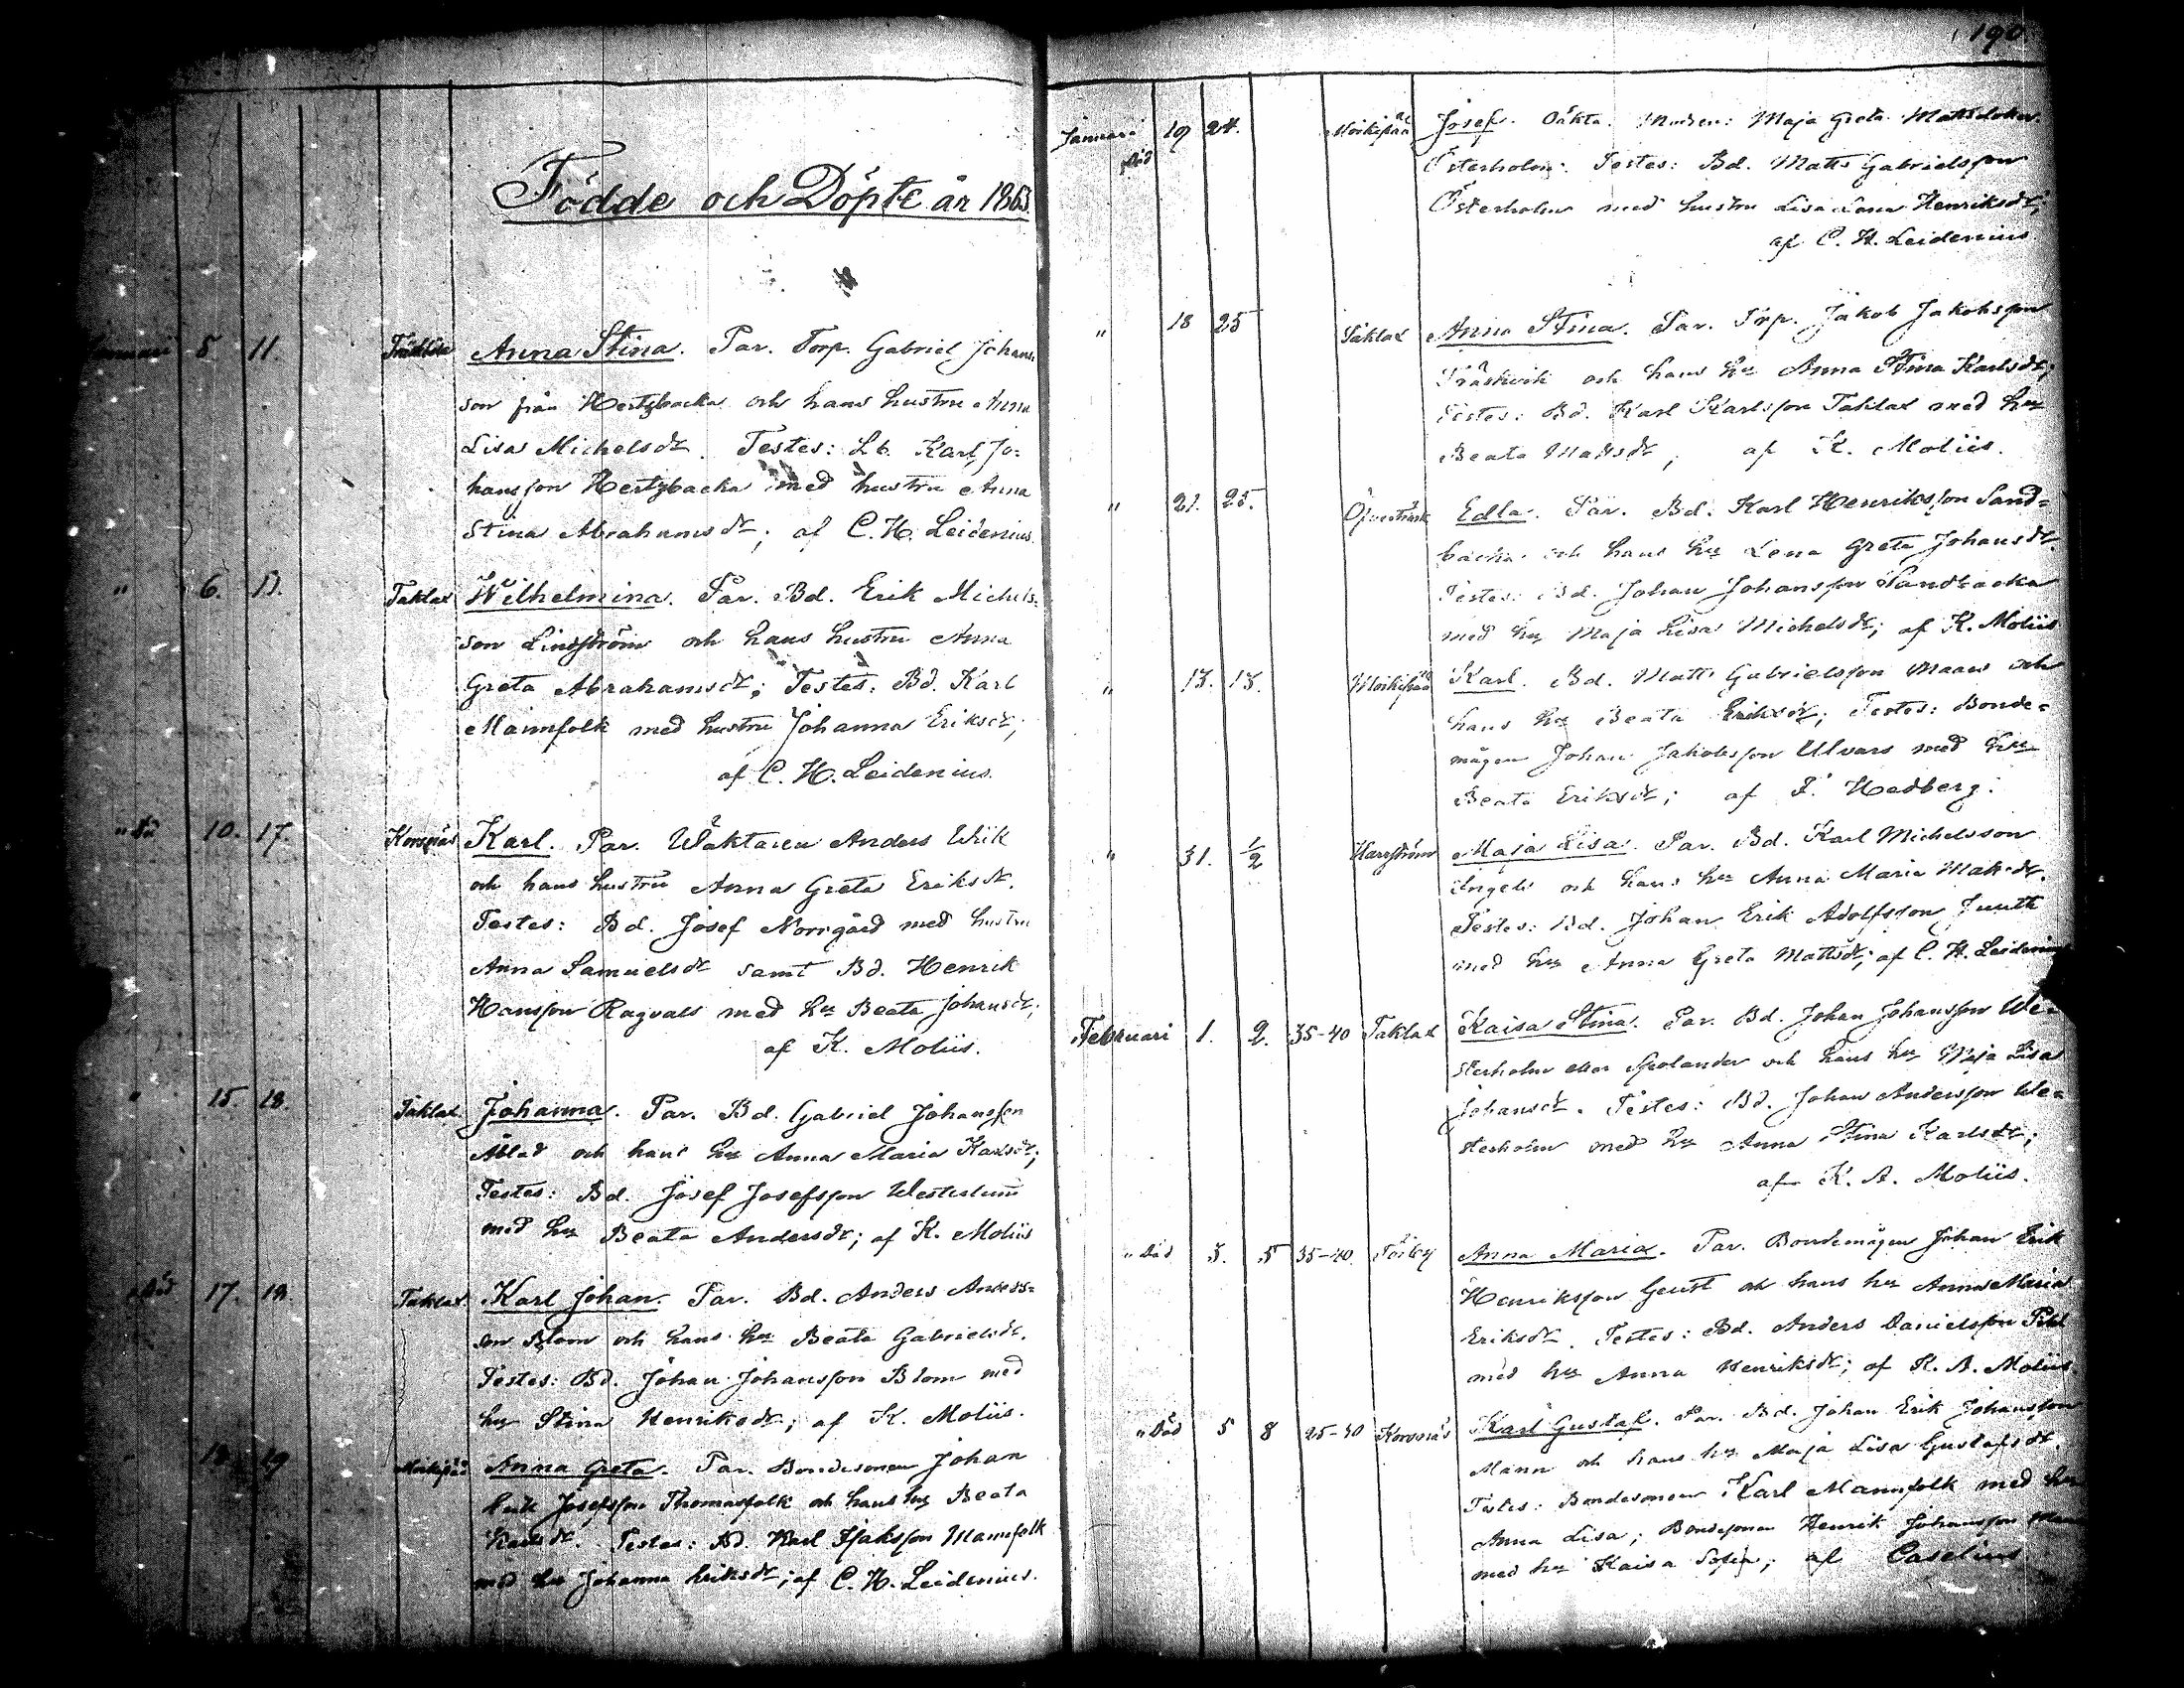 Födde och Döpte år 1863.
Januari 5 11. Träskböle Anna Stina. Par. Torp. Gabriel Johans
son från Hertzbacka och hans hustru Anna
Lisa Michelsdr. Testes: Lb. Karl Jo:
hansson Hertzbacka med hustru Anna
Stina Abrahamsdr; af C. H. Leidenius.
" 6. 11. Taklax Wilhelmina. Par. Bd. Erik Michels:
son Lindström och hans hustru Anna
Greta Abrahamsdr; Testes: Bd. Karl
Mannfolk med hustru Johanna Eriksdr;
af C. H. Leidenius.
" 10. 17. Korsnäs Karl. Par. Wäktaren Anders Wik
och hans hustru Anna Greta Eriksdr.
Testes: Bd. Josef Norrgård med hustru
Anna Samuelsdr samt Bd. Henrik
Hansson Ragvals med hu Beata Johansdr;
af K. Moliis.
" 15. 18. Taklax. Johanna. Par. Bd. Gabriel Johansson
Åblad och hans hu Anna Maria Karlsdr;
Testes: Bd. Josef Josefsson Westerlund
med hu Beata Andersdr; af K. Moliis
" Död 17. 18. Taklax. Karl Johan. Par. Bd. Anders Anders=
son Blom och hans hu Beata Gabrielsdr.
Testes: Bd. Johan Johansson Blom med
hu Stina Henriksdr; af K. Moliis.
" 18 19 Moikipää Anna Greta. Par. Bondesonen Johan
Erik Josefsson Thomasfolk och hans hu Beata
Karlsdr. Testes: Bd. Karl Isaksson Mannfolk
med hu Johanna Eriksdr; af C. H. Leidenius.
190
Januari Död 19 24. Moikipää Josef. Oäkta. Modren: Maja Greta Mattsdotter
Österholm. Testes: Bd. Matts Gabrielsson
Österholm med hustru Lisa Lena Henriksdr;
af C. H. Leidenius
" 18 25 Taklax Anna Stina. Par. Torp. Jakob Jakobsson
Träskvik och hans hu Anna Stina Karlsdr;
Testes: Bd. Karl Karlsson Taklax med hu
Beata Mattsdr; af K. Moliis.
" 21. 25. Öfverträsk Edla. Par. Bd. Karl Henriksson Sand=
backa och hans hu Lena Greta Johansdr.
Testes: Bd. Johan Johansson Sandbacka
med hu Maja Lisa Michelsdr; af K. Moliis
" 15. 15. Moikipää Karl. Bd. Matts Gabrielsson Maans och
hans hu Beata Eriksdr; Testes: Bonde=
mågen Johan Jakobsson Ulvars med hu
Beata Eriksdr; af I. Hedberg.
" 31. 1/2 Harrström Maja Lisa. Par. Bd. Karl Michelsson
Ingels och hans hu Anna Maria Matsdr.
Testes: Bd. Johan Erik Adolfsson Juuth
med hu Anna Greta Mattsdr; af C. H. Leidenius
Februari 1. 2. 35-40 Taklax Kaisa Stina. Par. Bd. Johan Johansson We=
sterholm eller Spolander och hans hu Maja Lisa
Johansdr. Testes: Bd. Johan Andersson We=
sterholm med hu Anna Stina Karlsdr;
af K. A. Moliis.
" Död 3. 5 35-40. Töiby Anna Maria. Par. Bondemågen Johan Erik
Henriksson Geust och hans hu Anna Maria
Eriksdr. Testes: Bd. Anders Danielsson Pihl
med hu Anna Henriksdr; af K. A. Moliis.
" Död 5 8 25-30 Korsnäs Karl Gustaf. Par. Bd. Johan Erik Johansson
Mann och hans hu Maja Lisa Gustafsdr.
Testes: Bondesonen Karl Mannfolk med hu
Anna Lisa; Bondesonen Henrik Johansson Mann
med hu Kaisa Sofia; af Caselius